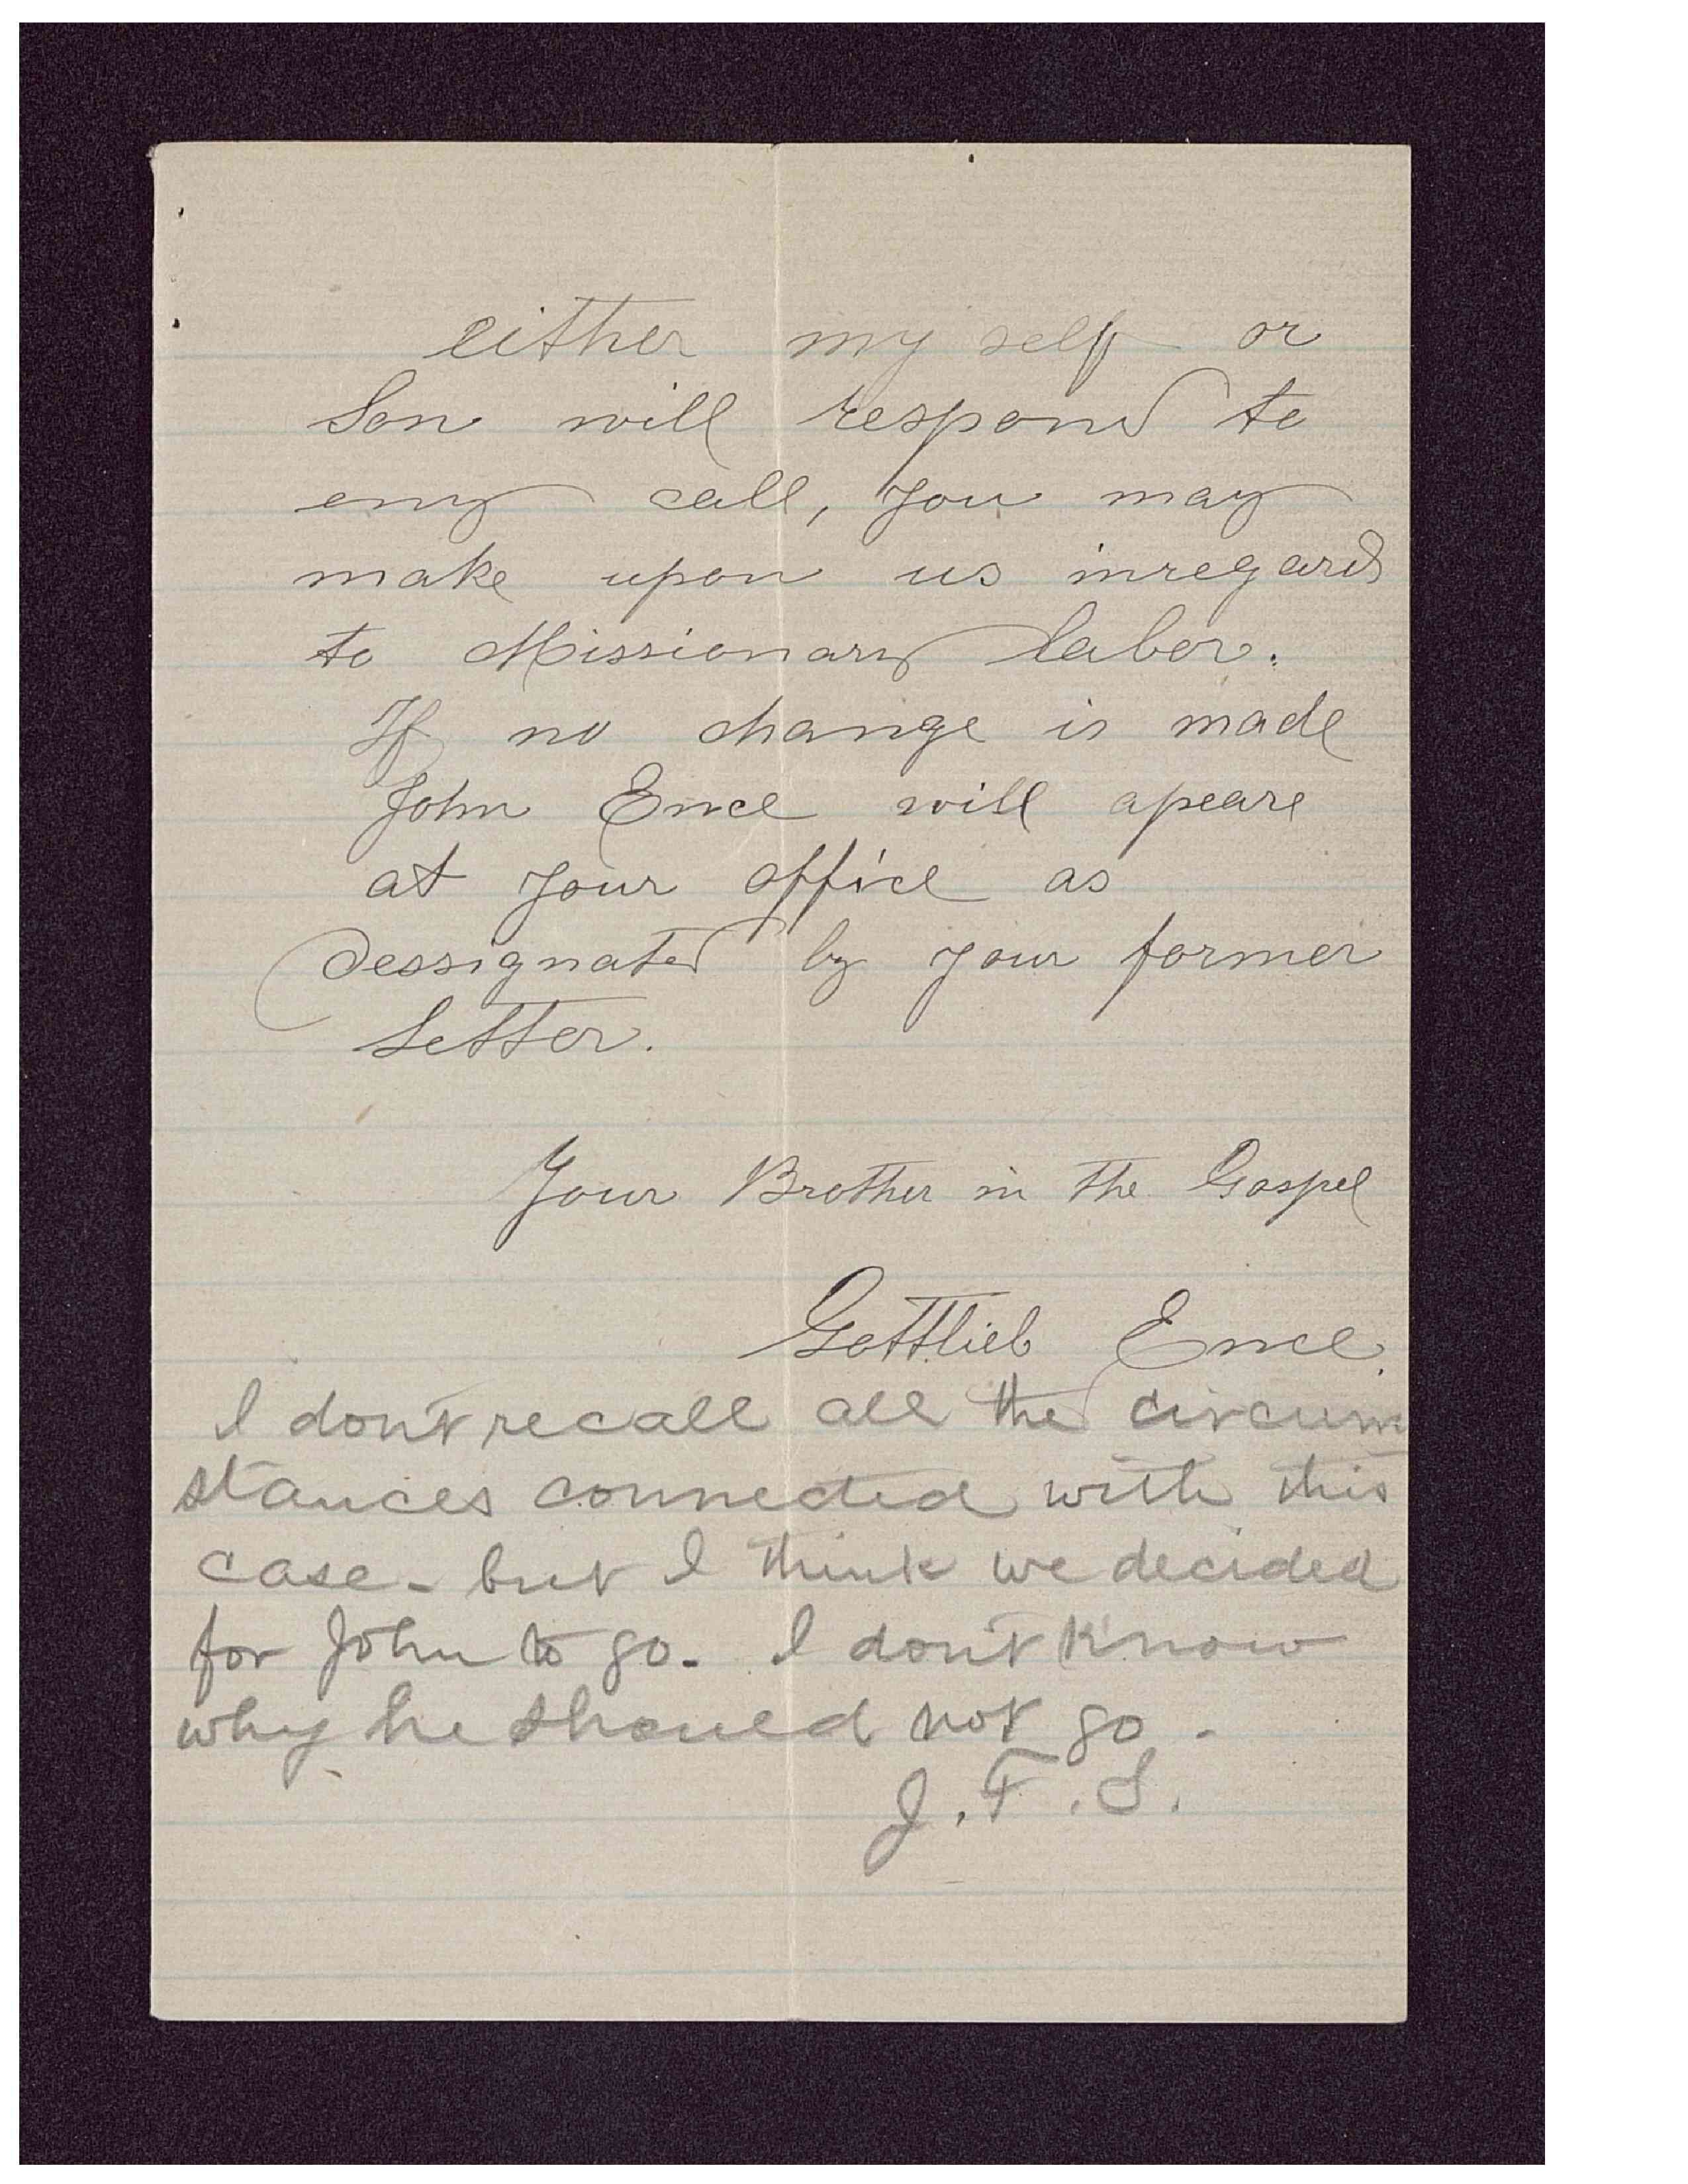 either my self or
Son will respond to
eny call, you may
make upon us inregard
to Missionary labor.
If no change is made
John Ence will apeare
at your office as
dessignated by your former
Letter.
Your Brother in the Gospel
Gottlieb Ence
I don't recall all the circum
stances connected with this
case - but I think we decided
for John to go. I don't know
why he should not go -
J. F. S.